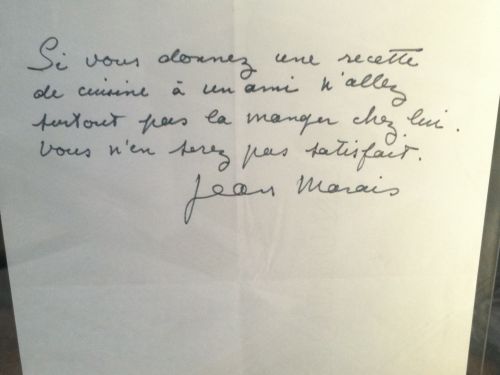 Si vous donnez une recette
de cuisine à un ami n'allez
surtout pas la manger chez lui.
Vous n'en serez pas satisfait.
Jean Marais